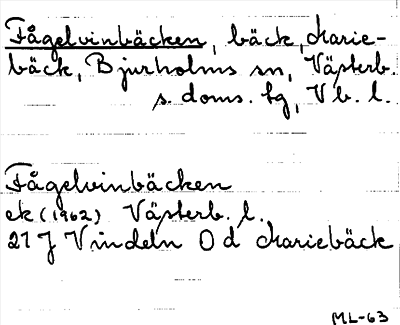 Fågelvinbäcken, bäck, Marie-
bäck, Bjurholms sn, Västerb.
s. doms. hg, Vb. l.
Fågelvinbäcken
ek (1962) Västerb. l.
21 J Vindeln 0 d Mariebäck
ML-63